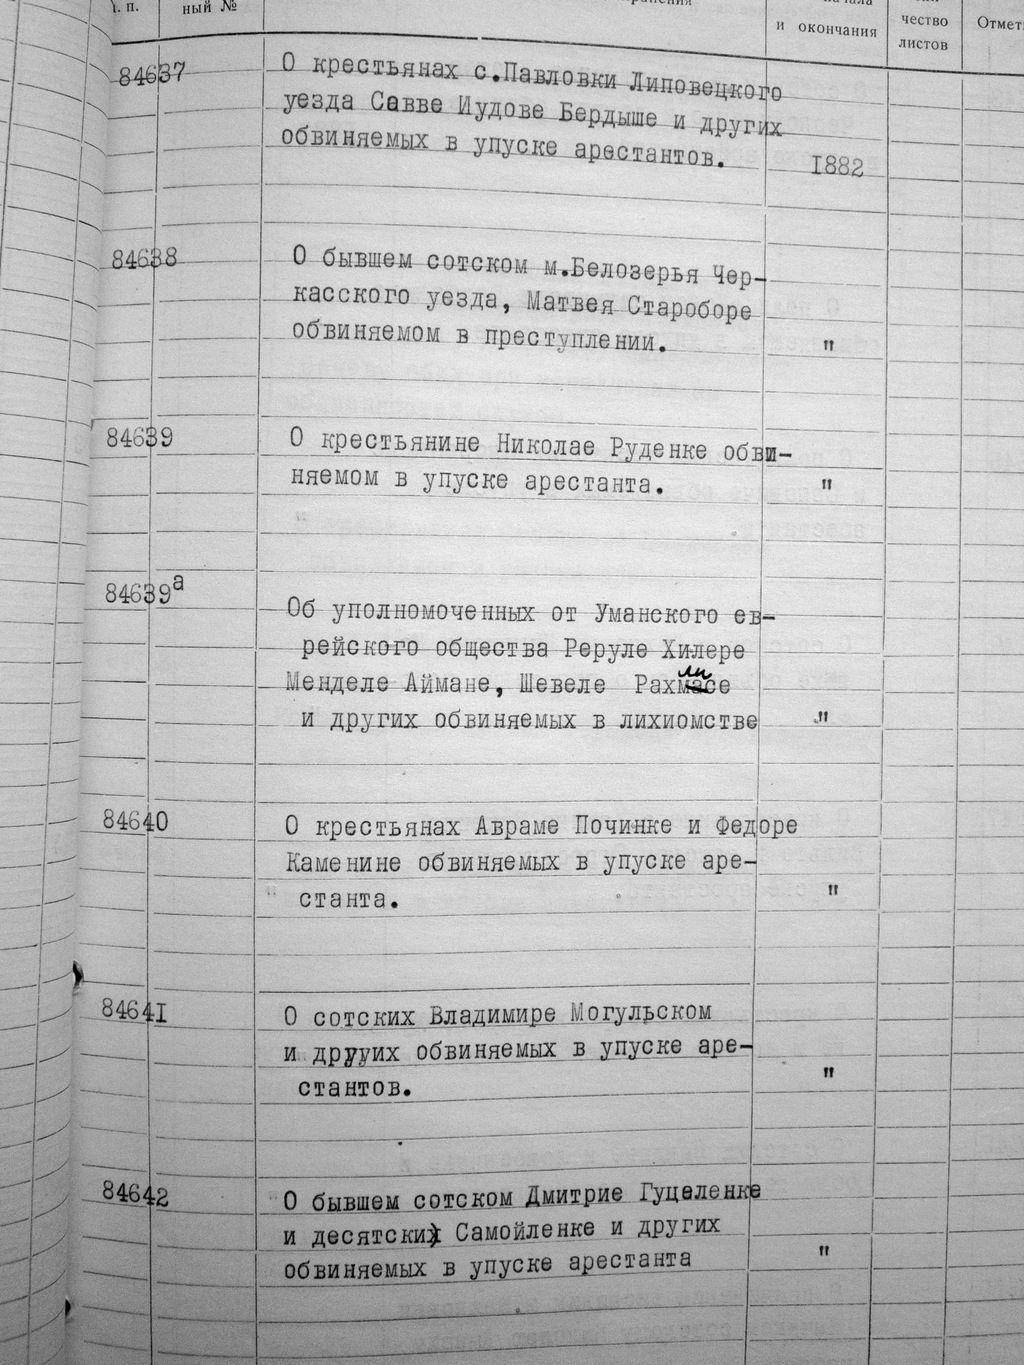 п. п.
ный №
и окончания
чество
листов
84637
О крестьянах с.Павловки Липовецкого
уезда Савве Иудове Бердыше и других
обвиняемых в упуске арестантов.
1882
84638
О бывшем сотском м.Белозерья Чер-
касского уезда, Матвея Староборе
обвиняемом в преступлении.
"
84639
О крестьянине Николае Руденке обви-
няемом в упуске арестанта.
"
84639а
Об уполномоченных от Уманского ев-
рейского общества Реруле Хилере
Менделе Аймане, Шевеле
и других обвиняемых в лихиомстве
"
84640
О крестьянах Авраме Починке и Федоре
Каменине обвиняемых в упуске аре-
станта.
"
84641
О сотских Владимире Могульском
и друуих обвиняемых в упуске аре-
стантов.
"
84642
О бывшем сотском Дмитрие Гуцеленке
и десятских Самойленке и других
обвиняемых в упуске арестанта
"